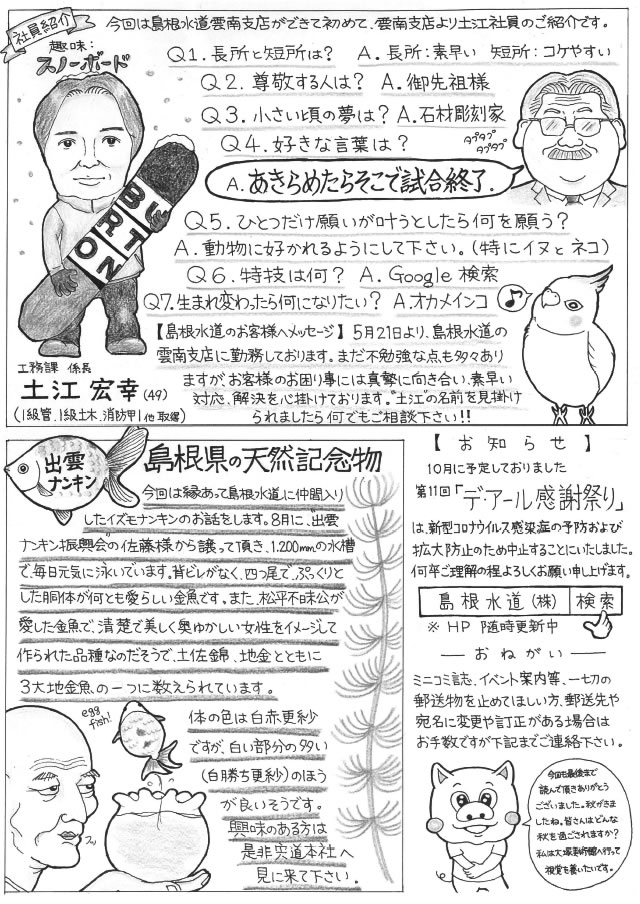 社員紹介
今回は島根水道雲南支店ができて初めて、雲南支店より土江社員のご紹介です。
趣味:
スノーボード
Q1.長所と短所は? A.長所:素早い 短所:コケやすい
Q2.尊敬する人は? A.御先祖様
Q3.小さい頃の夢は? A.石材彫刻家
Q4.好きな言葉は?
タプタプ
タプタプ
A.あきらめたらそこで試合終了.
BURTON
Q5.ひとつだけ願いが叶うとしたら何を願う?
A.動物に好かれるようにして下さい。(特にイヌとネコ)
Q6.特技は何? A.Google検索
Q7.生まれ変わったら何になりたい? A.オカメインコ
【島根水道のお客様へメッセージ】5月21日より、島根水道の
雲南支店に勤務しております。まだ不勉強な点も多々あり
ますが、お客様のお困り事には真摯に向き合い、素早い
対応、解決を心掛けております。"土江"の名前を見掛け
られましたら何でもご相談下さい!!
工務課 係長
土江 宏幸(49)
(1級管.1級土木.消防甲1他取得)
出雲
ナンキン
島根県の天然記念物
今回は縁あって島根水道に仲間入り
したイズモナンキンのお話をします。8月に、"出雲
ナンキン振興会"の佐藤様から譲って頂き、1.200mmの水槽
で、毎日元気に泳いでいます。背ビレがなく、四つ尾で、ぷっくりと
した胴体が何とも愛らしい金魚です。また、松平不昧公が
愛した金魚で、清楚で美しく奥ゆかしい女性をイメージして
作られた品種なのだそうで、土佐錦、地金とともに
3大地金魚の一つに数えられています。
egg
fish!
体の色は白赤更紗
ですが、白い部分の多い
(白勝ち更紗)のほう
が良いそうです。
興味のある方は
是非宍道本社へ
見に来て下さい。
フッ
【お知らせ】
10月に予定しておりました
第11回「デ・アール感謝祭り」
は、新型コロナウイルス感染症の予防および
拡大防止のため中止することにいたしました。
何卒ご理解の程よろしくお願い申し上げます。
島根水道(株) 検索
※HP 随時更新中
おねがい
ミニコミ誌、イベント案内等、一切の
郵送物を止めてほしい方、郵送先や
宛名に変更や訂正がある場合は
お手数ですが下記までご連絡下さい。
今回も最後まで
読んで頂きありがとう
ございました。秋がきま
したね。皆さんはどんな
秋を過ごされますか?
私は大塚美術館へ行って
視覚を養いたいです。